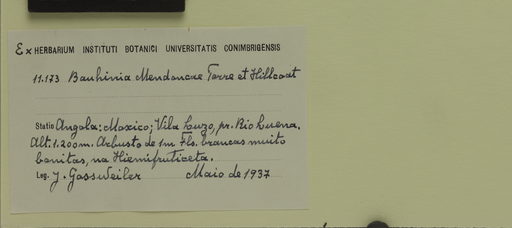 Ex HERBARIUM INSTITUTI BOTANICI UNIVERSITATIS CONIMBRIGENSIS
11.173 Bauhinia Mendoncae Torre et Hillcoat
Statio Angola: Moxico; Vila Luzo, pr. Rio Luena.
Alt. 1.200m. Arbusto de 1m Fls. brancas muito
bonitas, na Hiemifruticeta.
Leg. J. Gossweiler Maio de 1937